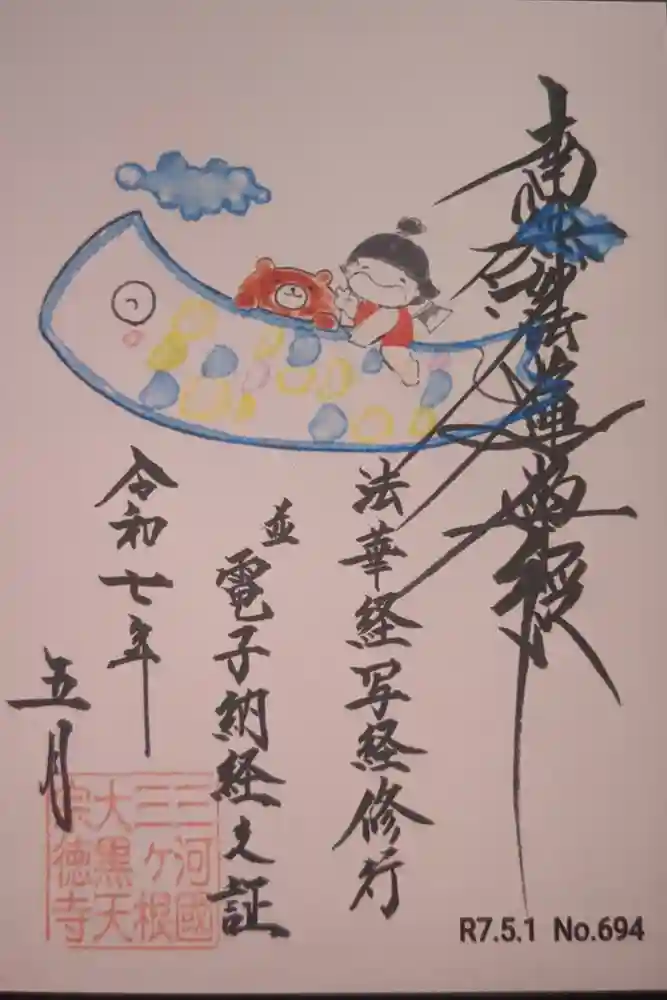 南無妙法蓮華経
法華経写経修行
並
電子納経之証
令和七年
五月
三河國
三ヶ根
大黒天
宗徳寺
R7.5.1 No.694